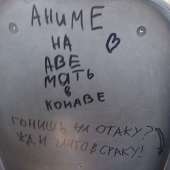 АНИМЕ
НА
АВЕ
МАТЬ
В
КАНАВЕ
ГОНИШЬ НА ОТАКУ?
ЖДИ В СРАКУ!